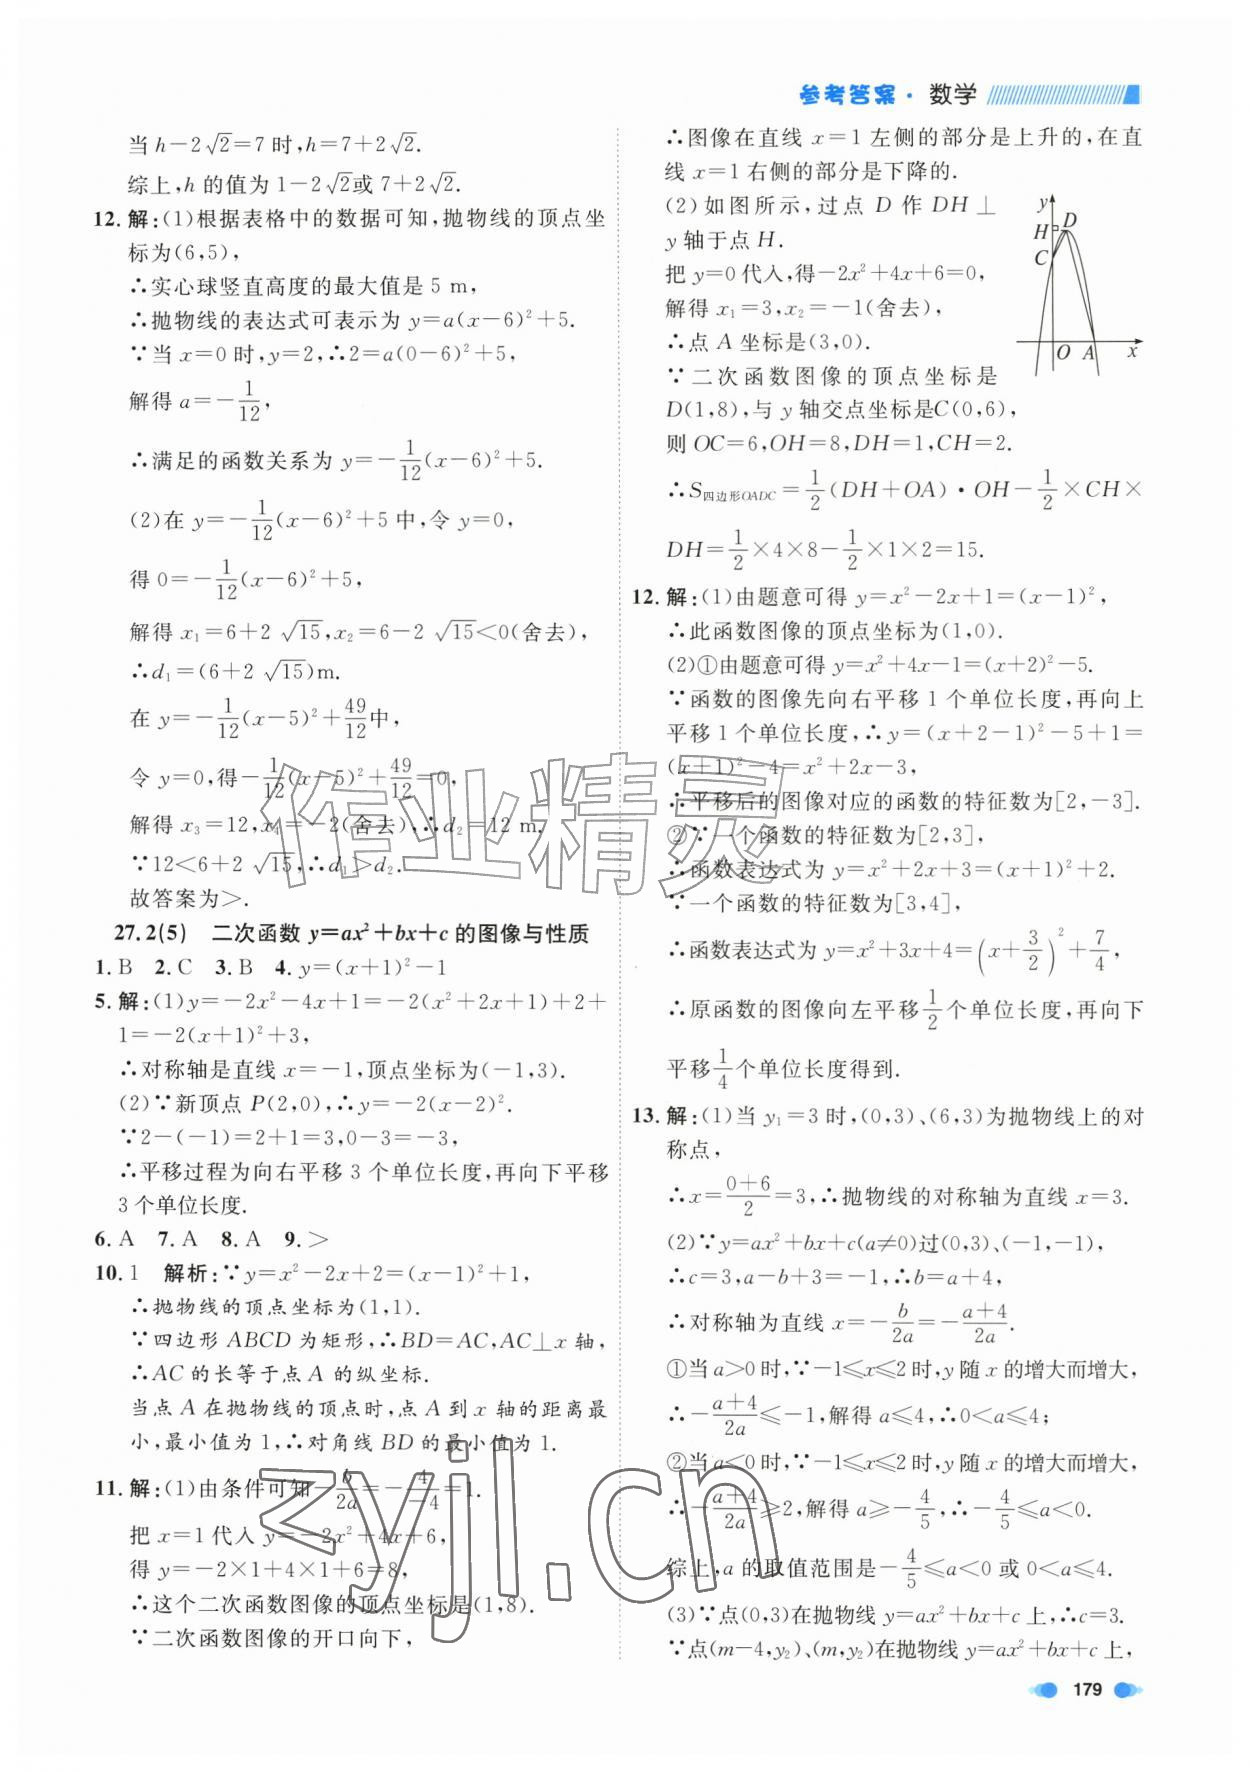 参考答案·数学
当 h－2√2＝7 时，h＝7＋2√2.
综上，h 的值为 1－2√2或 7＋2√2.
12. 解：(1)根据表格中的数据可知，抛物线的顶点坐
标为(6，5)，
∴实心球竖直高度的最大值是 5 m，
∴抛物线的表达式可表示为 y＝a(x－6)²＋5.
∵当 x＝0 时，y＝2，∴2＝a(0－6)²＋5，
解得 a＝－1/12，
∴满足的函数关系为 y＝－1/12(x－6)²＋5.
(2)在 y＝－1/12(x－6)²＋5 中，令 y＝0，
得 0＝－1/12(x－6)²＋5，
解得 x₁＝6＋2 √15，x₂＝6－2 √15＜0(舍去)，
∴d₁＝(6＋2 √15)m.
在 y＝－1/12(x－5)²＋49/12中，
令 y＝0，得－1/12(x－5)²＋49/12＝0，
解得 x₃＝12，x₄＝－2(舍去)，∴d₂＝12 m.
∵12＜6＋2 √15，∴d₁＞d₂.
故答案为＞.
27.2(5) 二次函数 y＝ax²＋bx＋c 的图像与性质
1. B 2. C 3. B 4. y＝(x＋1)²－1
5. 解：(1)y＝－2x²－4x＋1＝－2(x²＋2x＋1)＋2＋
1＝－2(x＋1)²＋3，
∴对称轴是直线 x＝－1，顶点坐标为(－1，3).
(2)∵新顶点 P(2，0)，∴y＝－2(x－2)².
∵2－(－1)＝2＋1＝3，0－3＝－3，
∴平移过程为向右平移 3 个单位长度，再向下平移
3 个单位长度.
6. A 7. A 8. A 9. ＞
10. 1 解析：∵y＝x²－2x＋2＝(x－1)²＋1，
∴抛物线的顶点坐标为(1，1).
∵四边形 ABCD 为矩形，∴BD＝AC，AC⊥x 轴，
∴AC 的长等于点 A 的纵坐标.
当点 A 在抛物线的顶点时，点 A 到 x 轴的距离最
小，最小值为 1，∴对角线 BD 的最小值为 1.
11. 解：(1)由条件可知－b/2a＝－4/－4＝1.
把 x＝1 代入 y＝－2x²＋4x＋6，
得 y＝－2×1＋4×1＋6＝8，
∴这个二次函数图像的顶点坐标是(1，8).
∵二次函数图像的开口向下，
∴图像在直线 x＝1 左侧的部分是上升的，在直
线 x＝1 右侧的部分是下降的.
(2)如图所示，过点 D 作 DH⊥
y 轴于点 H.
把 y＝0 代入，得－2x²＋4x＋6＝0，
解得 x₁＝3，x₂＝－1(舍去)，
∴点 A 坐标是(3，0).
∵二次函数图像的顶点坐标是
D(1，8)，与 y 轴交点坐标是C(0，6)，
则 OC＝6，OH＝8，DH＝1，CH＝2.
y
H D
C
O A x
∴S四边形OADC＝1/2(DH＋OA)·OH－1/2×CH×
DH＝1/2×4×8－1/2×1×2＝15.
12. 解：(1)由题意可得 y＝x²－2x＋1＝(x－1)²，
∴此函数图像的顶点坐标为(1，0).
(2)①由题意可得 y＝x²＋4x－1＝(x＋2)²－5.
∵函数的图像先向右平移 1 个单位长度，再向上
平移 1 个单位长度，∴y＝(x＋2－1)²－5＋1＝
(x＋1)²－4＝x²＋2x－3，
∴平移后的图像对应的函数的特征数为[2，－3].
②∵一个函数的特征数为[2，3]，
∴函数表达式为 y＝x²＋2x＋3＝(x＋1)²＋2.
∵一个函数的特征数为[3，4]，
∴函数表达式为 y＝x²＋3x＋4＝(x＋3/2)²＋7/4，
∴原函数的图像向左平移1/2个单位长度，再向下
平移1/4个单位长度得到.
13. 解：(1)当 y₁＝3 时，(0，3)、(6，3)为抛物线上的对
称点，
∴x＝(0＋6)/2＝3，∴抛物线的对称轴为直线 x＝3.
(2)∵y＝ax²＋bx＋c(a≠0)过(0，3)、(－1，－1)，
∴c＝3，a－b＋3＝－1，∴b＝a＋4，
∴对称轴为直线 x＝－b/2a＝－(a＋4)/2a.
①当 a＞0 时，∵－1≤x≤2 时，y 随 x 的增大而增大，
∴－(a＋4)/2a≤－1，解得 a≤4，∴0＜a≤4；
②当 a＜0 时，∵－1≤x≤2 时，y 随 x 的增大而增大，
∴－(a＋4)/2a≥2，解得 a≥－4/5，∴－4/5≤a＜0.
综上，a 的取值范围是－4/5≤a＜0 或 0＜a≤4.
(3)∵点(0，3)在抛物线 y＝ax²＋bx＋c 上，∴c＝3.
∵点(m－4，y₂)、(m，y₂)在抛物线 y＝ax²＋bx＋c 上，
179
作业精灵
zyjl.cn